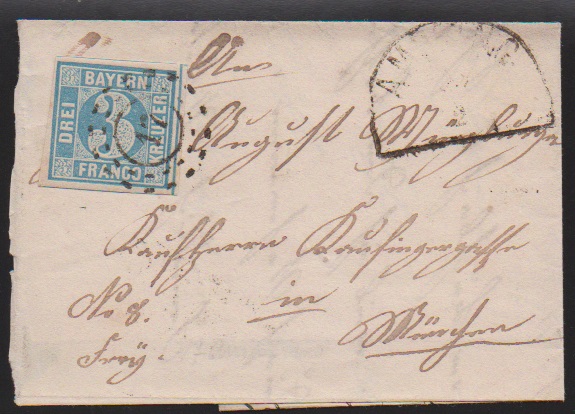 BAYERN
DREI
3
KREUZER
FRANCO
An
August
Kaufherrn Kaufingergasse
No 8.
in
Frey.
München